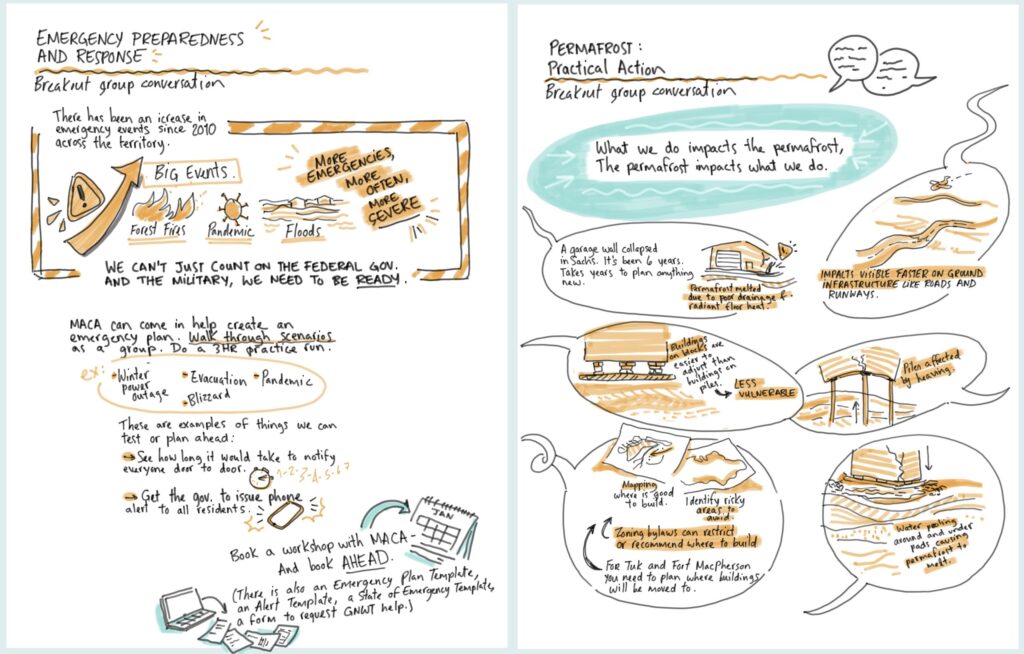 EMERGENCY PREPAREDNESS
AND RESPONSE
Breakout group conversation
There has been an icrease in
emergency events since 2010
across the territory.
BIG EVENTS.
Forest Fires
Pandemic
Floods
MORE
EMERGENCIES,
MORE
OFTEN,
MORE
SEVERE
WE CAN'T JUST COUNT ON THE FEDERAL GOV.
AND THE MILITARY, WE NEED TO BE READY.
MACA can come in help create an
emergency plan. Walk through scenarios
as a group. Do a 3HR practice run.
ex:
Winter
power
outage
Evacuation
Pandemic
Blizzard
These are examples of things we can
test or plan ahead:
See how long it would take to notify
everyone door to door.
1-2-3-4-5-6-7
Get the gov. to issue phone
alert to all residents.
JAN
Book a workshop with MACA-
And book AHEAD.
(There is also an Emergency Plan Template,
an Alert Template, a State of Emergency Template,
a form to request GNWT help.)
PERMAFROST:
Practical Action
Breakout group conversation
What we do impacts the permafrost,
The permafrost impacts what we do.
A garage wall collapsed
in Sachs. It's been 6 years.
Takes years to plan anything
new.
Permafrost melted
due to poor drainage &
radiant floor heat.
IMPACTS VISIBLE FASTER ON GROUND
INFRASTRUCTURE LIKE ROADS AND
RUNWAYS.
Buildings
on blocks are
easier to
adjust than
buildings on
piles.
LESS
VULNERABLE
Piles affected
by heaving.
Mapping
where is good
to build.
Identify risky
areas to
avoid.
Zoning bylaws can restrict
or recommend where to build
For Tuk and Fort MacPherson
you need to plan where buildings
will be moved to.
Water pooling
around and under
pads causing
permafrost to
melt.